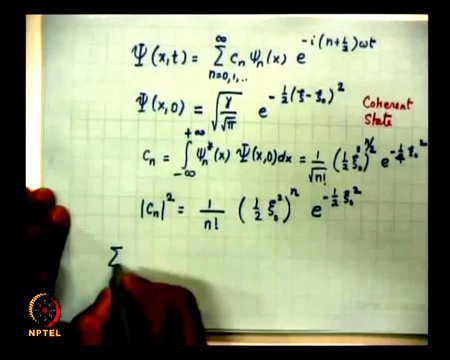 Ψ(x,t) = ∑_{n=0,1,..}^{∞} c_n ψ_n(x) e^{-i(n+½)ωt}
Ψ(x,0) = √(γ/√π) e^{-½(ξ-ξ₀)²} Coherent State
c_n = ∫_{-∞}^{+∞} ψ_n*(x) Ψ(x,0)dx = 1/√n! (½ξ₀²)^{n/2} e^{-¼ξ₀²}
|c_n|² = 1/n! (½ξ₀²)^n e^{-½ξ₀²}
∑
NPTEL